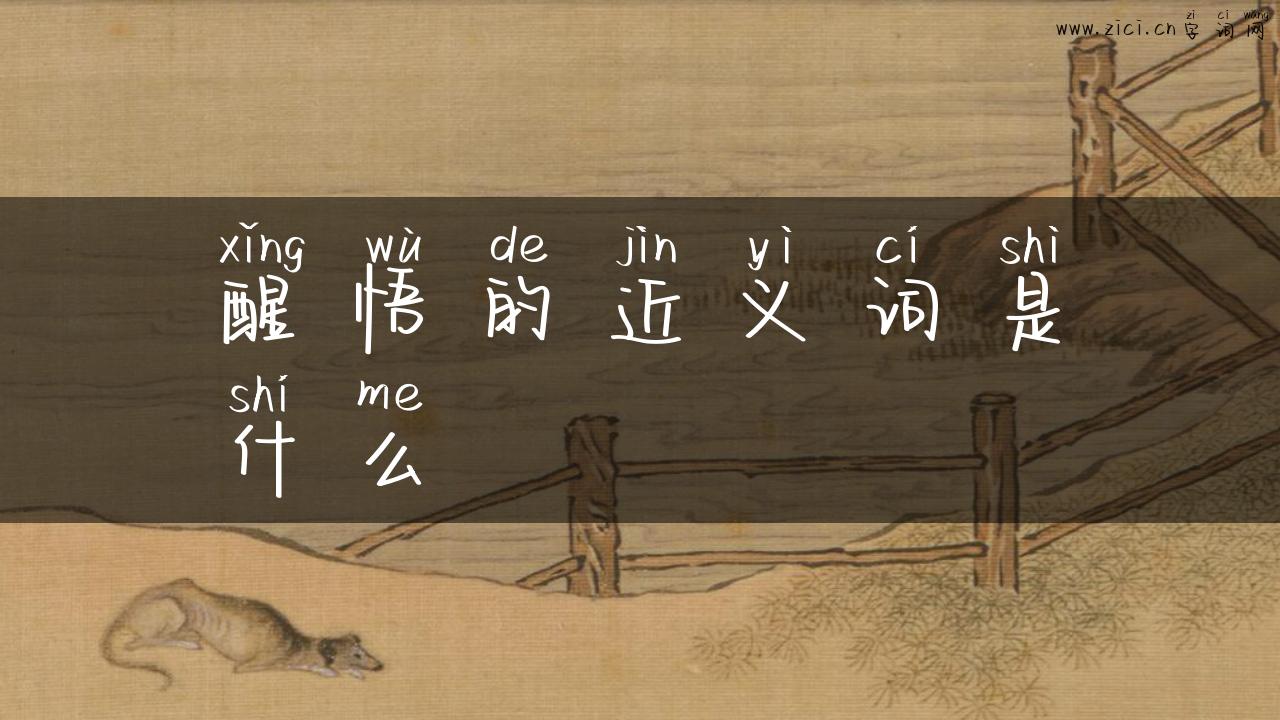 zì cí wǎng
www.zici.cn 字词网
xǐng wù de jìn yì cí shì
醒悟的近义词是
shí me
什么